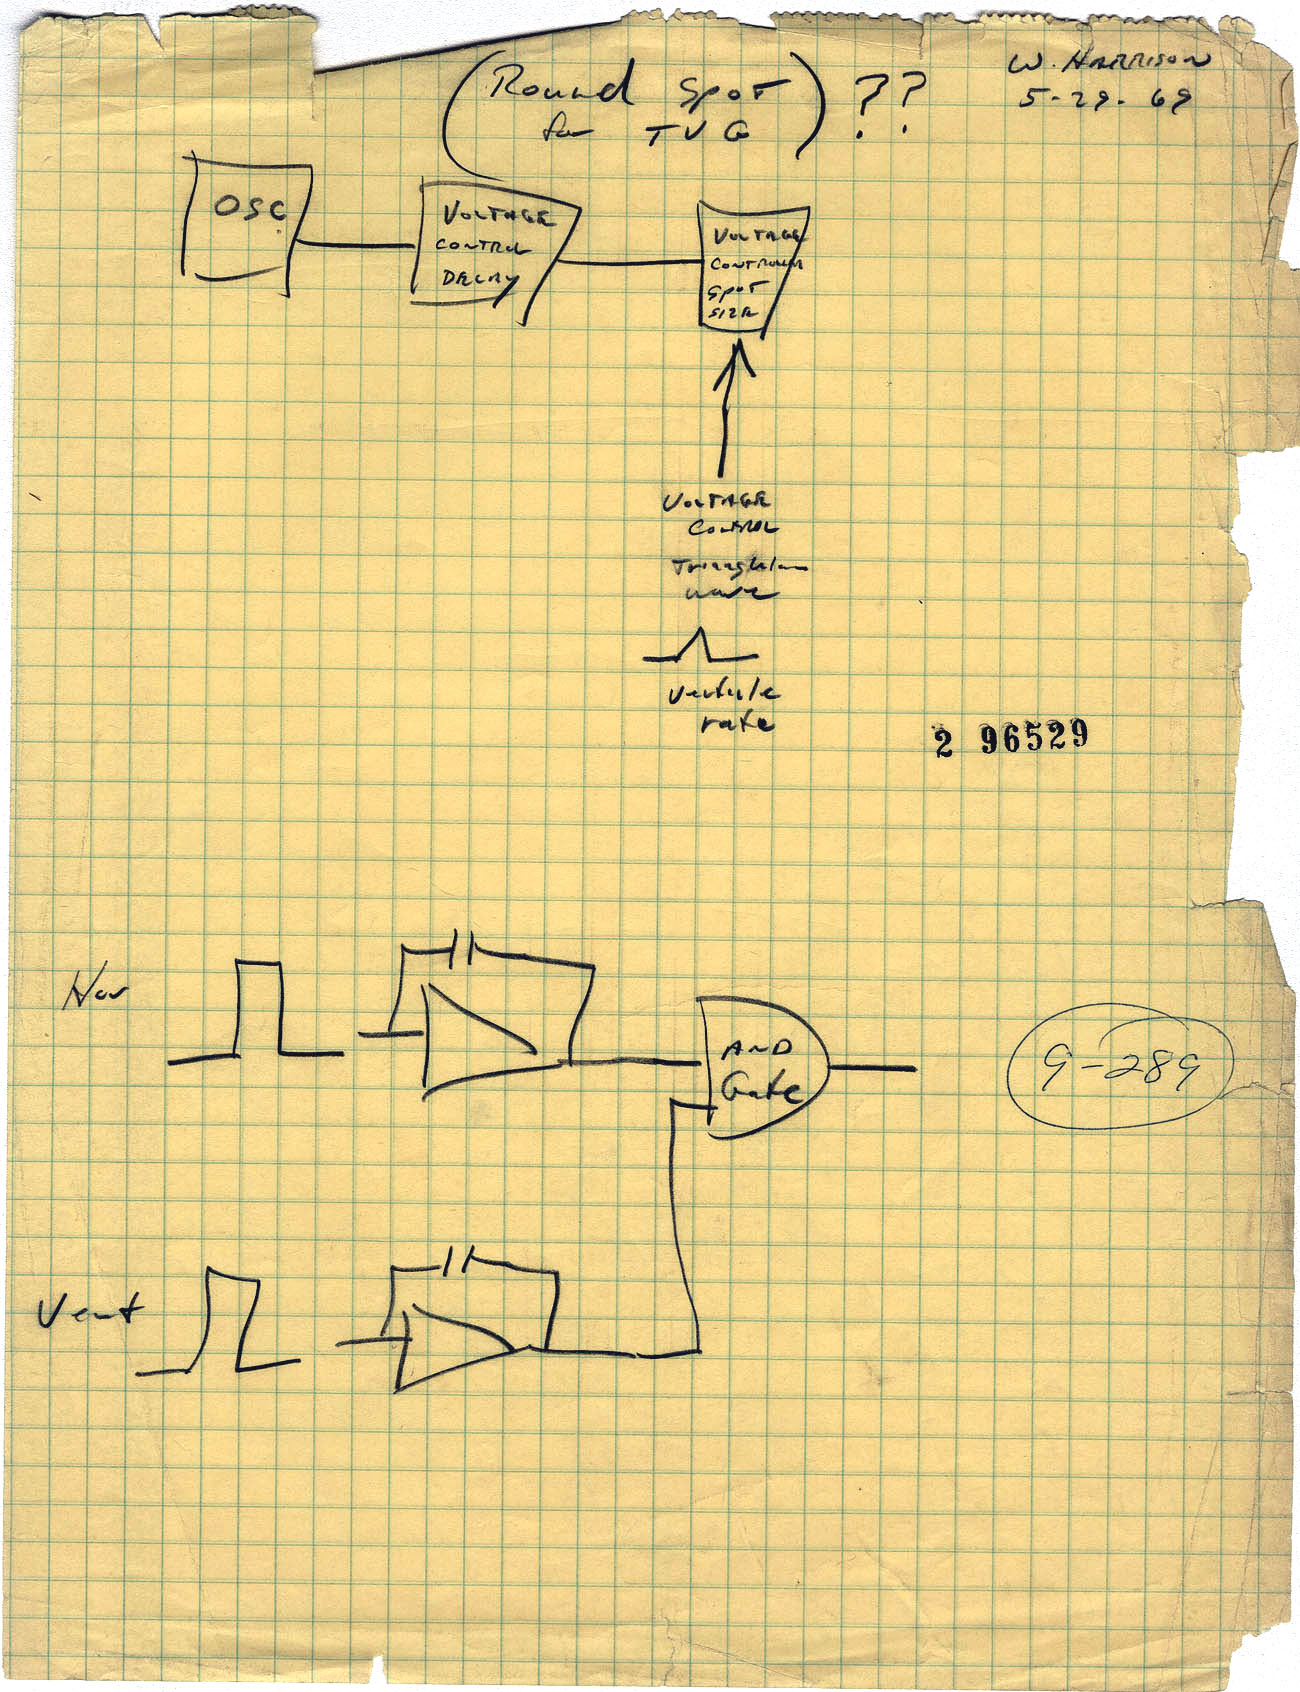 (Round Spot
for TVG) ??
W. HARRISON
5-29-69
OSC
VOLTAGE
CONTROL
DELAY
VOLTAGE
CONTROLLED
SPOT
SIZE
VOLTAGE
CONTROL
Triangular
wave
Verticle
rate
2 96529
Hor
AND
Gate
9-289
Vert